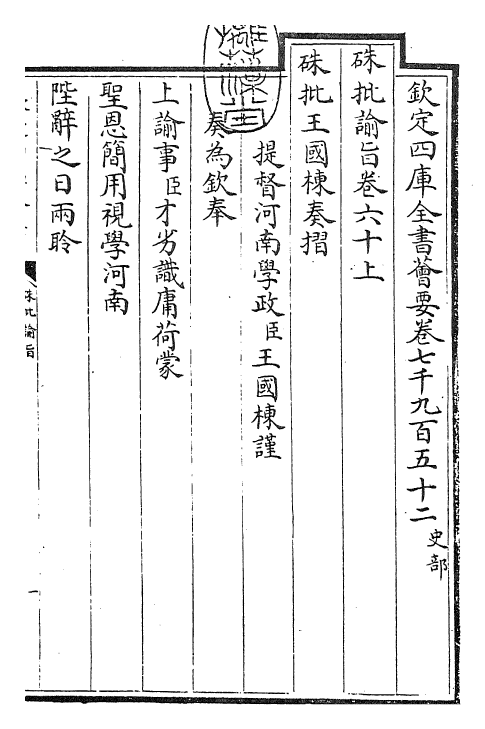 欽定四庫全書薈要卷七千九百五十二 史部
硃批諭旨卷六十上
硃批王國棟奏摺
提督河南學政臣王國棟謹
奏為欽奉
上諭事臣才劣識庸荷蒙
聖恩簡用視學河南
陛辭之日兩聆
硃批諭旨
一